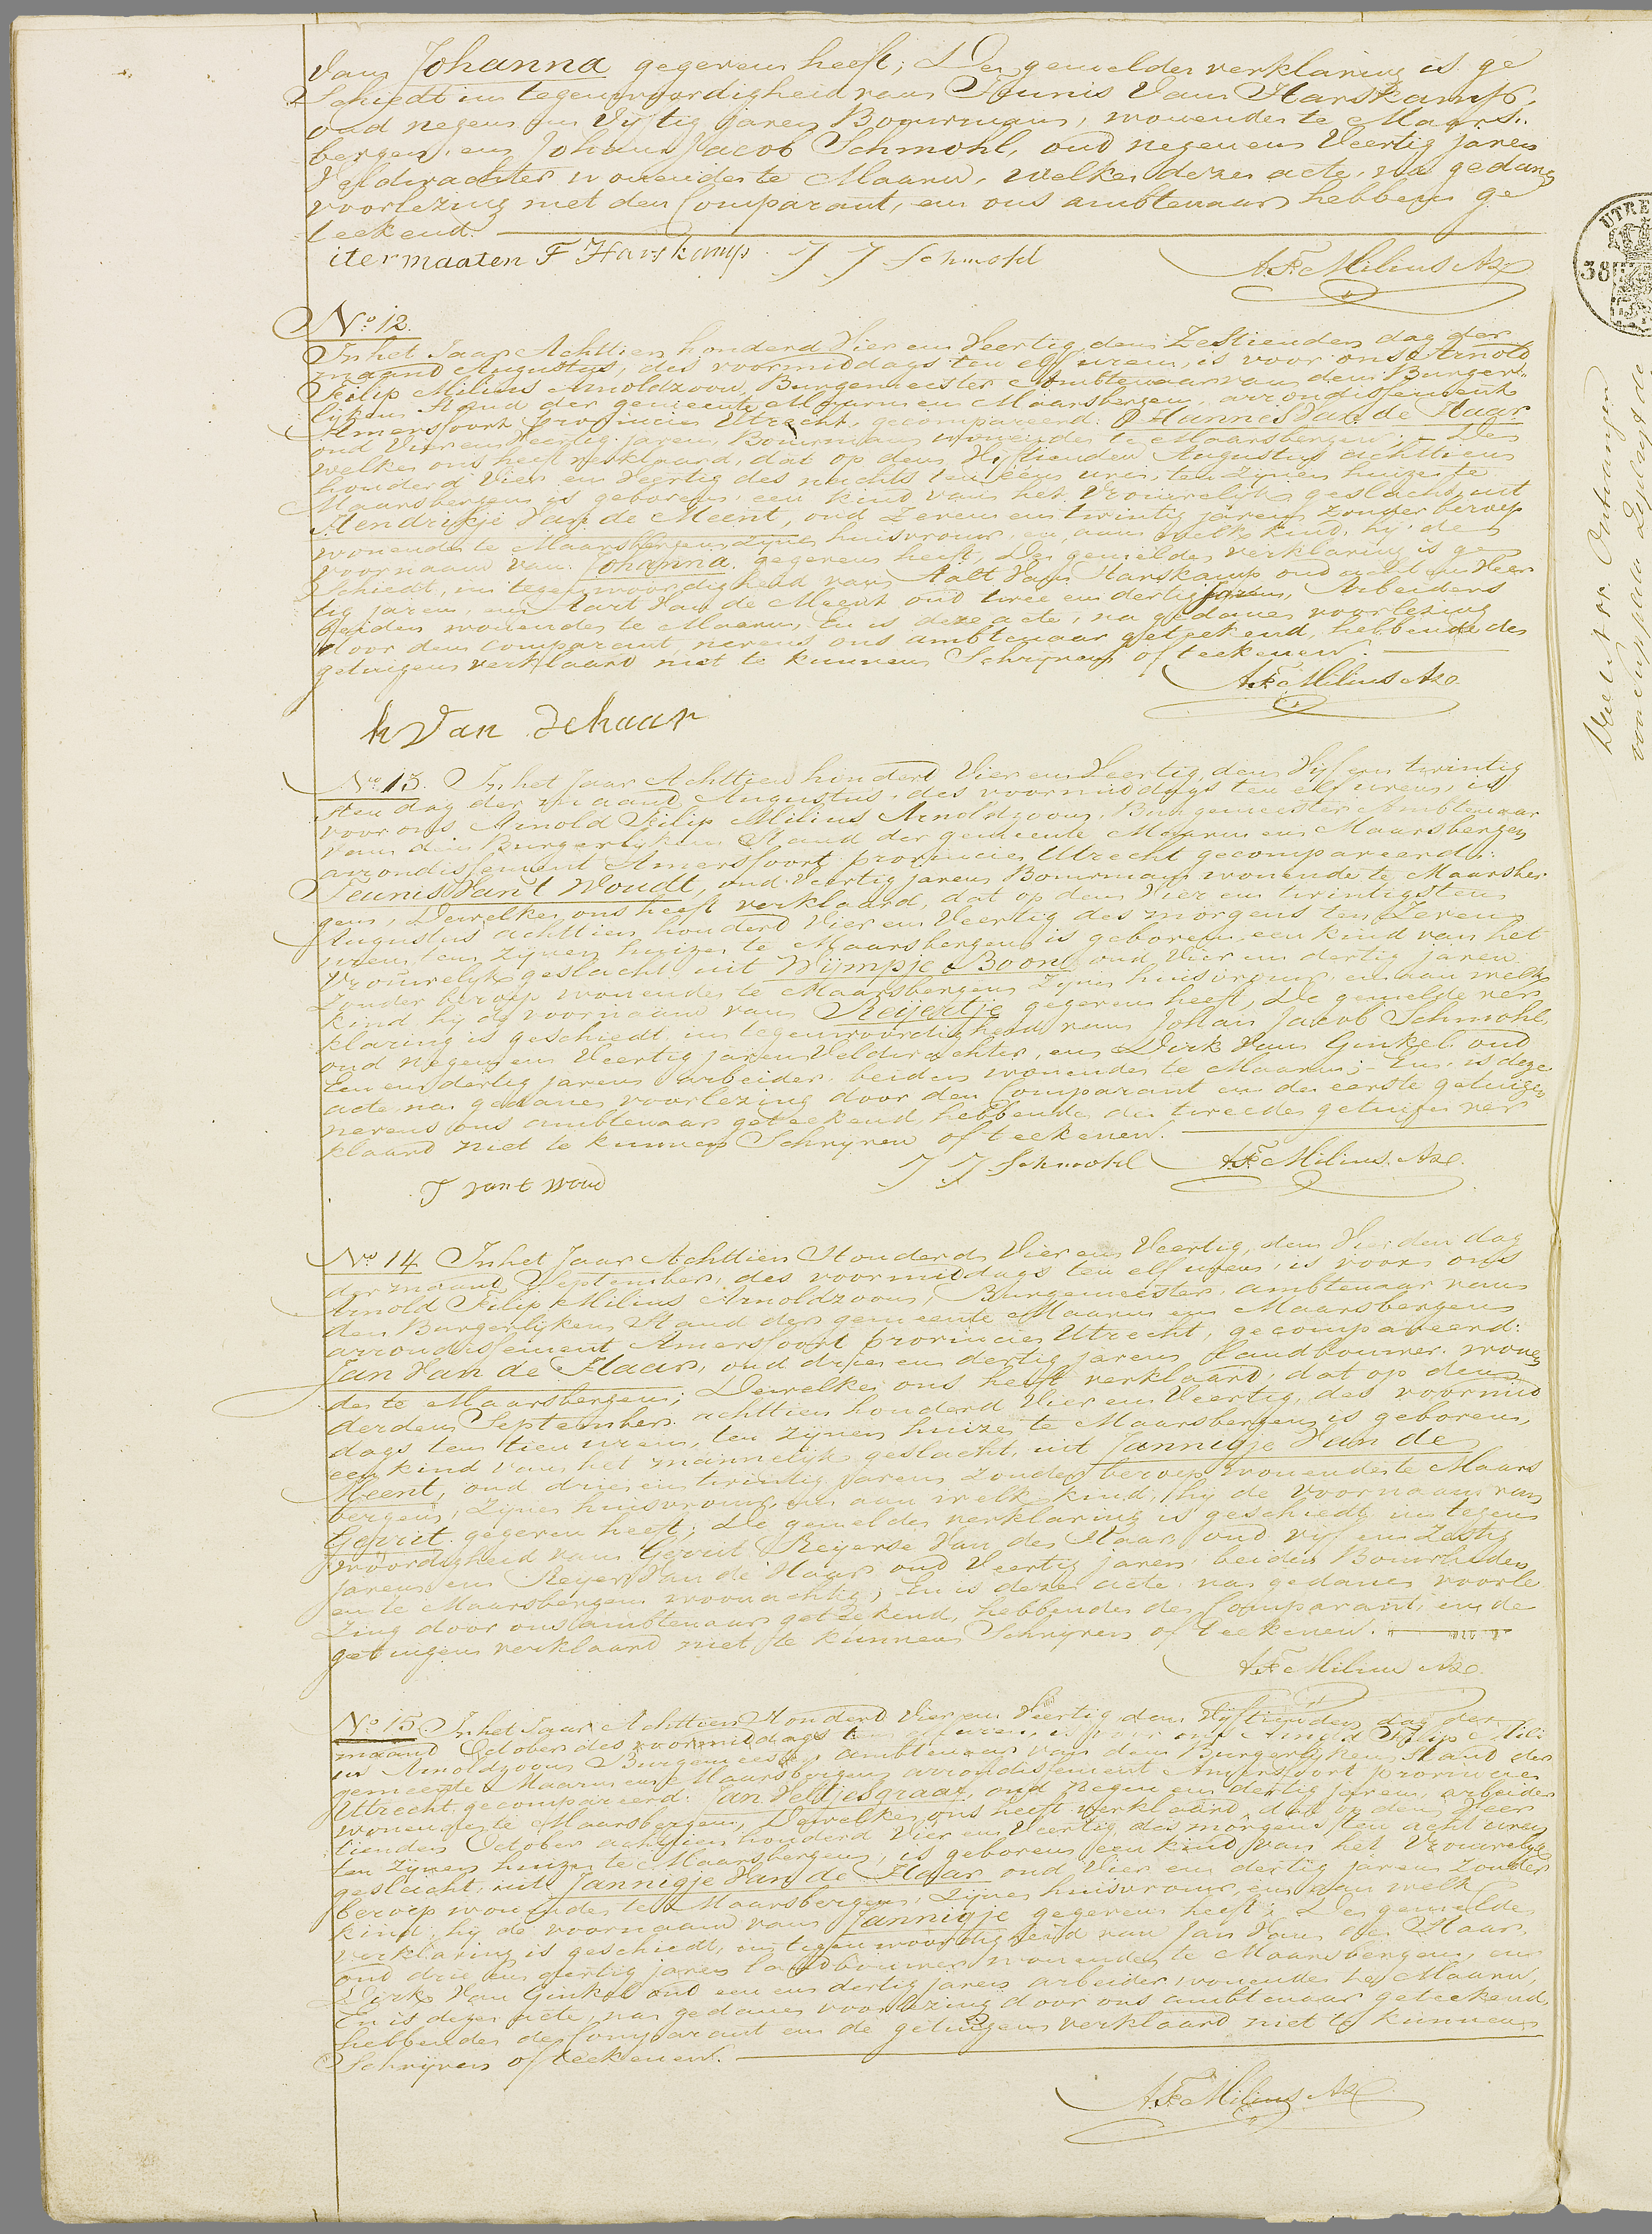 Van Johanna gegeven heeft; De gemelde verklaring is ge
Schiedt in tegenwoordigheid van Teunis Van Harskamp,
oud negen en Vijftig Jaren Bouwman, wonende te Maars
bergen en Johan Jacob Schmohl, oud negen en Veertig Jaren
Veldwachter wonende te Maarn, welke deze acte, na gedane
voorlezing met den Comparant, en ons ambtenaar hebben ge
teekend.
itermaaten T Harskamp J J Schmohl A.F. Milius Az
No 12.
In het Jaar Achttien honderd Vier en Veertig den Zestienden dag der
maand Augustus, des voormiddags ten elf uren, is voor ons Arnold
Filip Milius Arnoldzoon, Burgemeester Ambtenaar van den Burger
lijken Stand der gemeente Maarn en Maarsbergen, arrondissement
Amersfoort provincie Utrecht, gecompareerd: Hannes Van de Haar
oud Vier en Veertig Jaren, Bouwman wonende te Maarsbergen; De
welke ons heeft verklaard, dat op den Vijftienden Augustus achttien
honderd Vier en Veertig des nachts ten één ure, ten zijnen huize te
Maarsbergen is geboren, een kind van het Vrouwelijk geslacht, uit
Hendrikje Van de Meent, oud Zeven en twintig jaren zonder beroep
wonende te Maarsbergen, zijne huisvrouw, en aan welk kind, hij de
voornaam van Johanna gegeven heeft, De gemelde verklaring is ge
Schiedt, in tegenwoordigheid van Aalt Van Harskamp oud acht en Veer
tig jaren, en Aart Van de Meent oud twee en dertig jaren, Arbeiders
beiden wonende te Maarn En is deze acte, na gedane voorlezing
door den Comparant, nevens ons ambtenaar geteekend, hebbende de
getuigen verklaard niet te kunnen Schrijven of teekenen.
A.F. Milius Az
h Van dehaar
No 13. In het Jaar Achttien honderd Vier en Veertig, den Vijf en twintig
sten dag der maand Augustus, des voormiddags ten elf uren, is
voor ons Arnold Filip Milius Arnoldzoon, Burgemeester Ambtenaar
van den Burgerlijken Stand der gemeente Maarn en Maarsbergen
arrondissement Amersfoort provincie Utrecht gecompareerd:
Teunis Van't Woudt, oud Veertig jaren Bouwman wonende te Maarsber
gen, Dewelke ons heeft verklaard, dat op den Vier en twintigsten
Augustus achttien honderd Vier en Veertig des morgens ten Zeven
uren, ten zijnen huize te Maarsbergen is geboren, een kind van het
Vrouwelijk geslacht uit Wijmpje Boon, oud Vier en dertig jaren
Zonder beroep wonende te Maarsbergen zijne huisvrouw, en aan welk
kind hij de voornaam van Reijertje gegeven heeft, De gemelde ver
klaring is geschiedt in tegenwoordigheid van Johan Jacob Schmohl,
oud negen en Veertig jaren Veldwachter, en Dirk Van Ginkel oud
Een en dertig jaren arbeider, beiden wonende te Maarn; En is deze
acte, na gedane voorlezing door den Comparant en de eerste getuige
nevens ons ambtenaar geteekend, hebbende, de tweede getuige ver
klaard niet te kunnen Schrijven of teekenen.
J J Schmohl A.F. Milius Az.
T van t woud
No 14 In het Jaar Achttien Honderd Vier en Veertig, den Vierden dag
der maand September, des voormiddags ten elf uren, is voor ons
Arnold Filip Milius Arnoldzoon, Burgemeester, ambtenaar van
den Burgerlijken Stand der gemeente Maarn en Maarsbergen
arrondissement Amersfoort provincie Utrecht, gecompareerd:
Jan Van de Haar, oud drie en dertig jaren Landbouwer wonen
de te Maarsbergen; Dewelke ons heeft verklaard, dat op den
derden September achttien honderd Vier en Veertig, des voormid
dags ten tien uren, ten zijnen huize te Maarsbergen is geboren,
een kind van het mannelijk geslacht, uit Jannigje Van de
Meent, oud drie en twintig jaren zonder beroep wonende te Maars
bergen, zijne huisvrouw, en aan welk kind, hij de voornaam van
Gerrit gegeven heeft; De gemelde verklaring is geschiedt in tegen
woordigheid van Gerrit Reyerse Van de Haar oud vijf en Zestig
jaren en Reyer Van de Haar oud Veertig jaren, beiden Bouwlieden
en te Maarsbergen woonachtig; En is deze acte, na gedane voorle
zing door ons ambtenaar geteekend, hebbende de Comparant en de
getuigen verklaard niet te kunnen Schrijven of teekenen.
A.F. Milius Az.
No 15. In het Jaar Achttien Honderd Vier en Veertig den Vijftienden dag der
maand October des voormiddags ten uren, is voor ons Arnold Filip Mili
us Arnoldzoon Burgemeester ambtenaar van den Burgerlijken Stand der
gemeente Maarn en Maarsbergen arrondissement Amersfoort provincie
Utrecht, gecompareerd: Jan Veldjesgraaf, oud negen en dertig jaren, arbeider
wonende te Maarsbergen, Dewelke ons heeft verklaard, dat op den Veer
tienden October achttien honderd Vier en Veertig des morgens ten acht uren
ten zijnen huize te Maarsbergen, is geboren een kind van het Vrouwelijk
geslacht, uit Jannigje Van de Haar oud Vier en dertig jaren Zonder
beroep wonende te Maarsbergen, zijne huisvrouw, en aan welk
kind, hij de voornaam van Jannigje gegeven heeft; De gemelde
verklaring is geschiedt, in tegenwoordigheid van Jan Van de Haar
oud drie en dertig jaren landbouwer wonende te Maarsbergen, en
Dirk Van Ginkel oud een en dertig jaren arbeider wonende te Maarn,
En is deze acte, na gedane voorlezing door ons ambtenaar geteekend,
hebbende de Comparant en de getuigen verklaard niet te kunnen
Schrijven of teekenen.
A.F. Milius Az.
UTRE
38